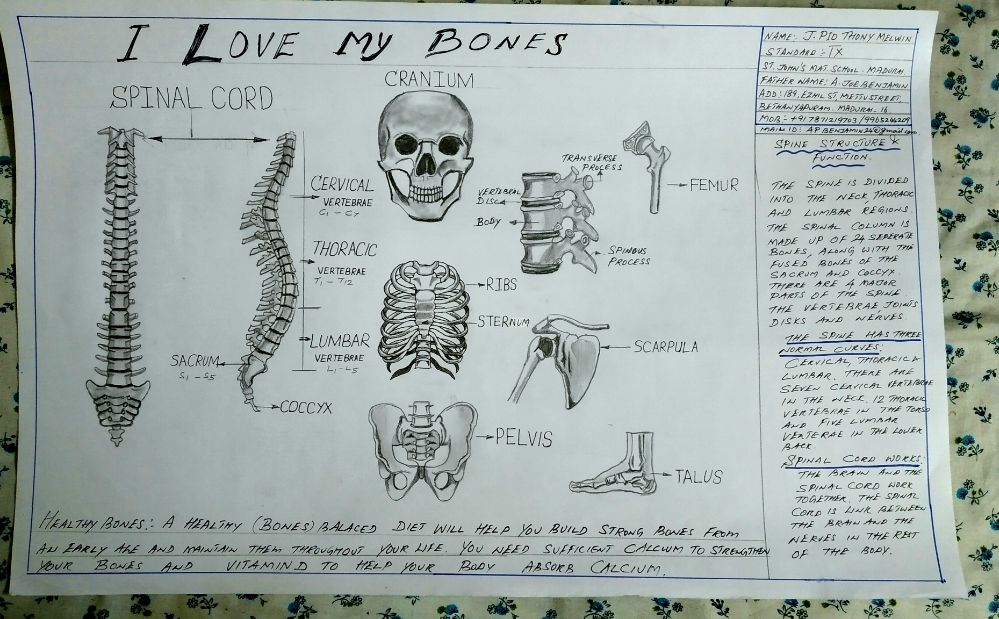 I LOVE MY BONES
SPINAL CORD
CERVICAL
VERTEBRAE
C1 - C7
THORACIC
VERTEBRAE
T1 - T12
LUMBAR
VERTEBRAE
L1 - L5
SACRUM
S1 - S5
COCCYX
CRANIUM
RIBS
STERNUM
PELVIS
TRANSVERSE
PROCESS
VERTEBRAL
DISC
BODY
SPINOUS
PROCESS
FEMUR
SCARPULA
TALUS
HEALTHY BONES: A HEALTHY (BONES) BALACED DIET WILL HELP YOU BUILD STRONG BONES FROM
AN EARLY AGE AND MAINTAIN THEM THROUGHOUT YOUR LIFE. YOU NEED SUFFICIENT CALCIUM TO STRENGTHEN
YOUR BONES AND VITAMIN D TO HELP YOUR BODY ABSORB CALCIUM.
NAME: J. PIO THONY MELWIN
STANDARD: IX
ST. JOHN'S MAT. SCHOOL. MADURAI.
FATHER NAME: A. JOE BENJAMIN
ADD: 189, EZHIL ST, METTU STREET,
BETHANYAPURAM. MADURAI - 16.
MOB: +91 7871219703 /
MAIL ID:
SPINE STRUCTURE &
FUNCTION.
THE SPINE IS DIVIDED
INTO THE NECK, THORACIC
AND LUMBAR REGIONS.
THE SPINAL COLUMN IS
MADE UP OF 24 SEPERATE
BONES, ALONG WITH THE
FUSED BONES OF THE
SACRUM AND COCCYX.
THERE ARE 4 MAJOR
PARTS OF THE SPINE
THE VERTEBRAE JOINTS
DISKS AND NERVES.
THE SPINE HAS THREE
NORMAL CURVES:
CERVICAL, THORACIC &
LUMBAR. THERE ARE
SEVEN CERVICAL VERTEBRAE
IN THE NECK, 12 THORACIC
VERTEBRAE IN THE TORSO
AND FIVE LUMBAR
VERTERAE IN THE LOWER
BACK
SPINAL CORD WORKS:
THE BRAIN AND THE
SPINAL CORD WORK
TOGETHER. THE SPINAL
CORD IS LINK BETWEEN
THE BRAIN AND THE
NERVES IN THE REST
OF THE BODY.